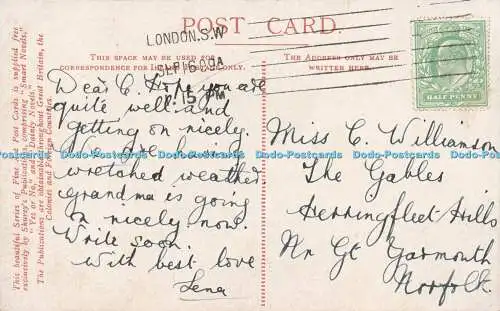 POST CARD.
LONDON.S.W
SEP 16 09
7.15 PM
THIS SPACE MAY BE USED FOR
CORRESPONDENCE FOR INLAND POSTAGE ONLY.
THE ADDRESS ONLY MAY BE
WRITTEN HERE.
HALF PENNY
This beautiful Series of Fine Art Post Cards is supplied free
exclusively by Shurey's Publications, comprising "Smart Novels,"
"Yes or No," and "Dainty Novels."
The Publications are obtainable throughout Great Britain, the
Colonies and Foreign Countries.
Dear C. Hope you are
quite well and
getting on nicely.
We are having
wretched weather
grandma is going
on nicely now.
Write soon.
With best love
Lena
Miss C Williamson
The Gables
Herringfleet Hills
Nr Gt Yarmouth
Norfolk.
Dodo-Postcards Dodo-Postcards Dodo-Postcards Dodo-Postcards Dodo-Postcards